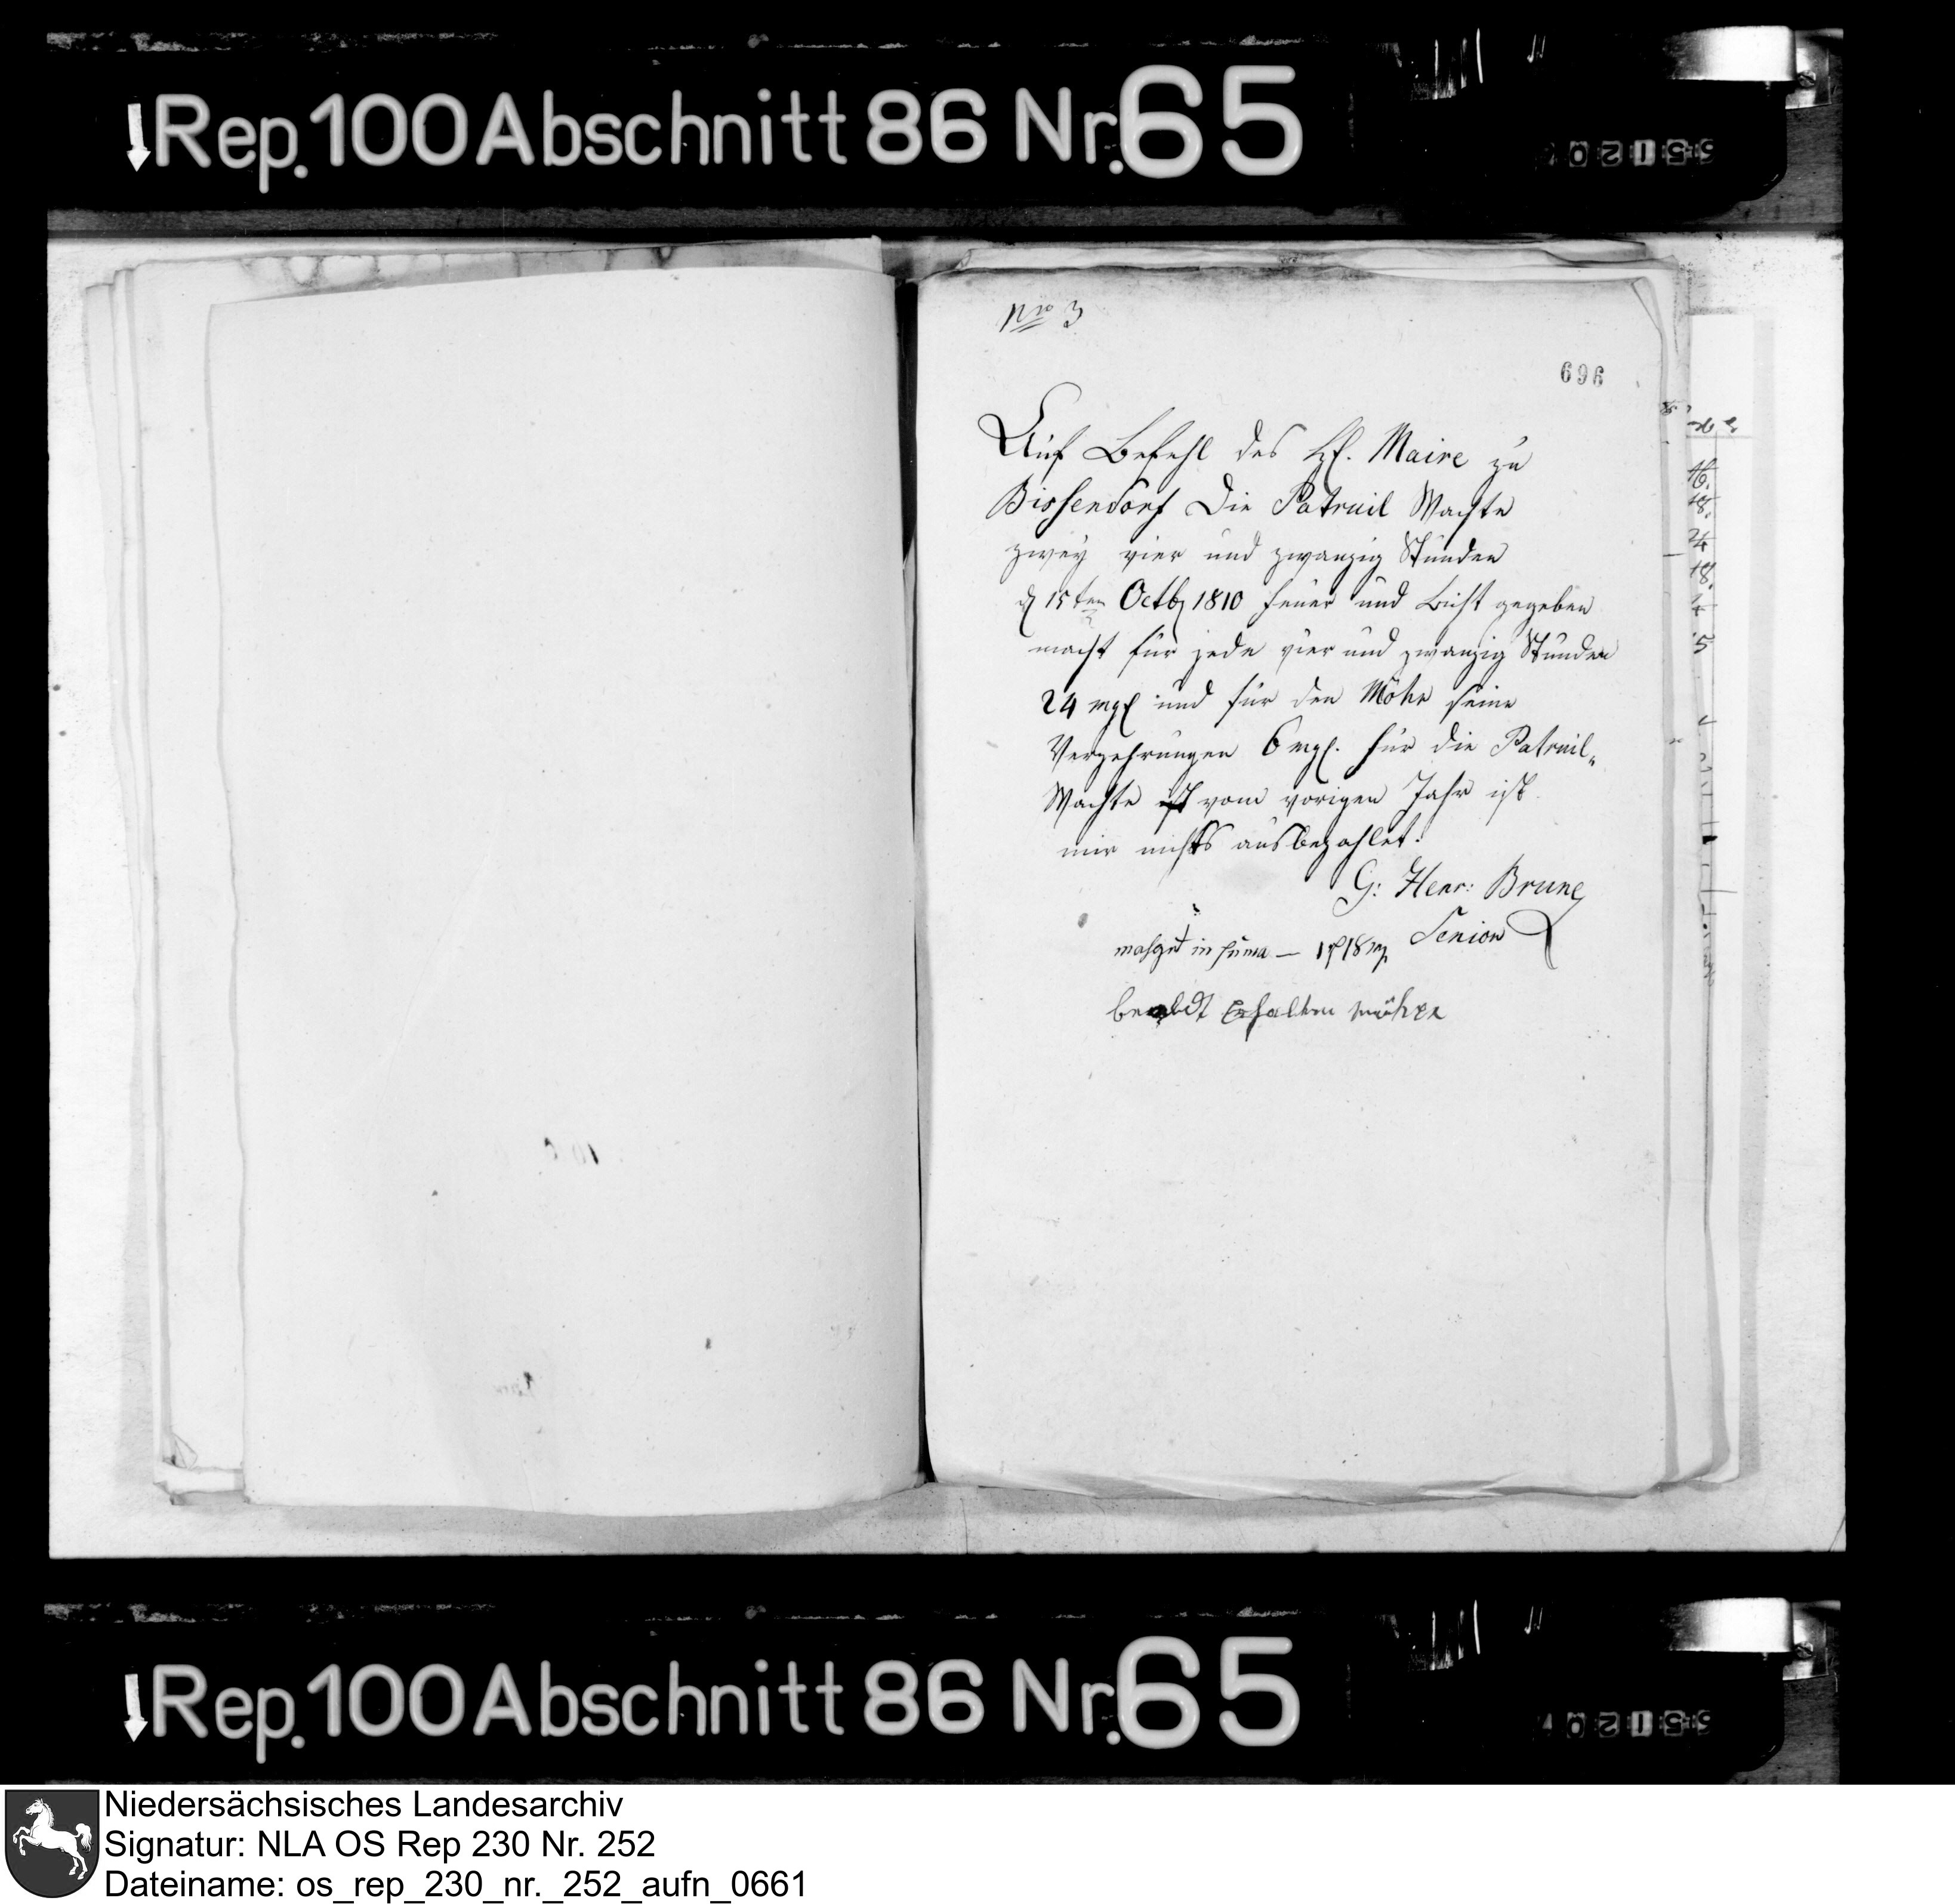 Rep. 100 Abschnitt 86 Nr. 65
Nro 3
696
Auf Befehl des H. Maire zu
Bissendorf Die Patruil Wachte
zwey vier und zwanzig Stunden
d 15ten Octb 1810 feuer und Licht gegeben
macht für jede vier und zwanzig Stunden
24 mgl und für den Möhr seine
Verzehrungen 6 mgl. für die Patruil„
Wachte vom vorigen Jahr ist
mir nichts ausbezahlet:
G: Henr: Brune
Senior
in suma — 1 18
Erhalten
Rep. 100 Abschnitt 86 Nr. 65
Niedersächsisches Landesarchiv
Signatur: NLA OS Rep 230 Nr. 252
Dateiname: os_rep_230_nr._252_aufn_0661